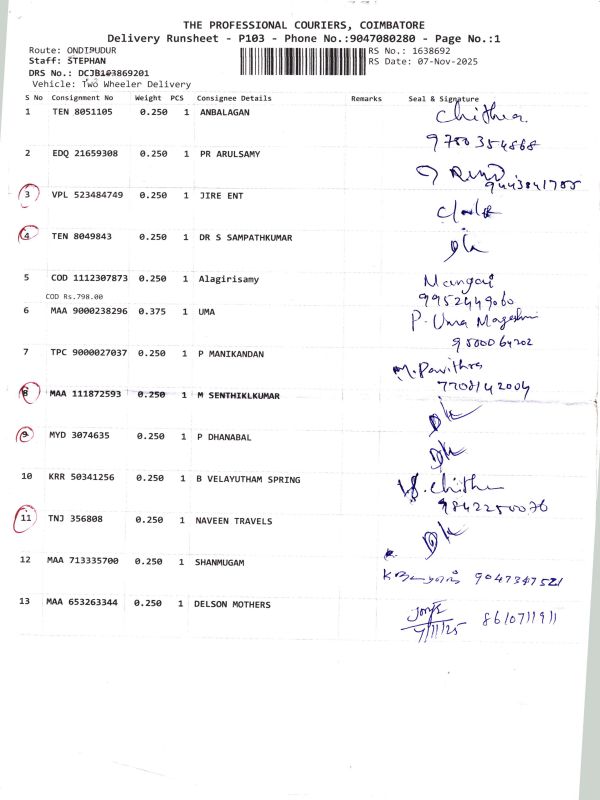 THE PROFESSIONAL COURIERS, COIMBATORE
Delivery Runsheet - P103 - Phone No.:9047080280 - Page No.:1
Route: ONDIPUDUR RS No.: 1638692
Staff: STEPHAN RS Date: 07-Nov-2025
DRS No.: DCJB103869201
Vehicle: Two Wheeler Delivery
S No Consignment No Weight PCS Consignee Details Remarks Seal & Signature
1 TEN 8051105 0.250 1 ANBALAGAN Chithra
2 EDQ 21659308 0.250 1 PR ARULSAMY
3 VPL 523484749 0.250 1 JIRE ENT
4 TEN 8049843 0.250 1 DR S SAMPATHKUMAR
5 COD 1112307873 0.250 1 Alagirisamy Mangai
COD Rs.798.00 9952449060
6 MAA 9000238296 0.375 1 UMA P. Uma Mageshwari
7 TPC 9000027037 0.250 1 P MANIKANDAN M. Pavithra
7708142004
8 MAA 111872593 0.250 1 M SENTHIKLKUMAR
9 MYD 3074635 0.250 1 P DHANABAL
10 KRR 50341256 0.250 1 B VELAYUTHAM SPRING
9842250076
11 TNJ 356808 0.250 1 NAVEEN TRAVELS
12 MAA 713335700 0.250 1 SHANMUGAM 9047347521
13 MAA 653263344 0.250 1 DELSON MOTHERS 8610711911
7/11/25